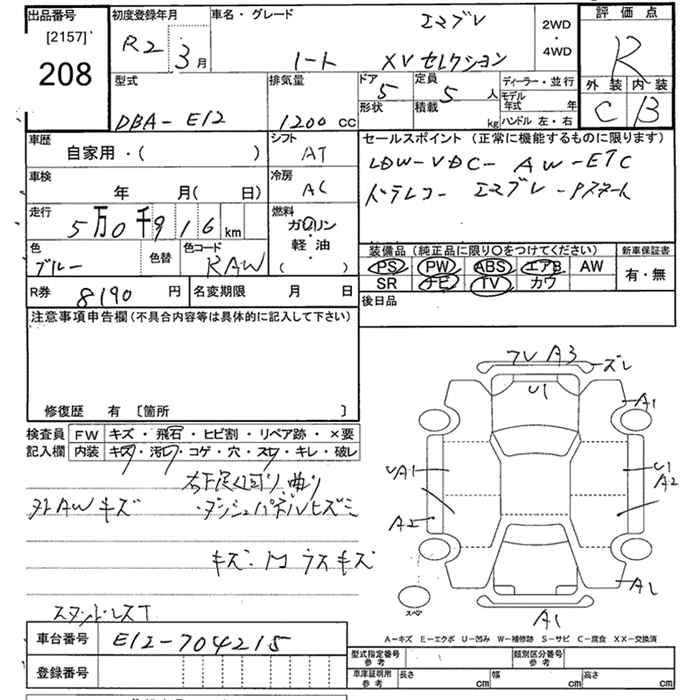 出品番号
[2157]
208
初度登録年月
R2 3月
車名・グレード
エマブレ
ノート XVセレクション
2WD
・
4WD
評価点
R
外装 内装
C B
型式
DBA-E12
排気量
1200 cc
ドア
5
形状
定員
5 人
積載 kg
ディーラー・並行
モデル年式 年
ハンドル 左・右
車歴
自家用・( )
シフト
AT
車検
年 月( 日)
冷房
AC
走行
5万0千916 km
燃料
ガソリン
・
軽油
( )
色
ブルー
色替
色コード
RAW
R券 8190 円
名変期限 月 日
セールスポイント(正常に機能するものに限ります)
LDW-VDC-AW-ETC
ドラレコ-エマブレ-Pスタート
装備品(純正品に限り○をつけてください)
PS PW ABS エアB AW
SR ナビ TV カワ
新車保証書
有・無
後日品
注意事項申告欄(不具合内容等は具体的に記入して下さい)
修復歴 有 [箇所 ]
検査員記入欄
FW キズ・飛石・ヒビ割・リペア跡・×要
内装 キズ・汚レ・コゲ・穴・スレ・キレ・破レ
曲り
外AWキズ ・ダッシュパネルヒズミ
キズ・ ウスキズ
フレ A3
ズレ
U1
A1
UA1
U1
A2
A2
A1
スペア
A1
A-キズ E-エクボ U-凹み W-補修跡 S-サビ C-腐食 XX-交換済
車台番号 E12-704215
登録番号
型式指定番号 参考
類別区分番号 参考
車庫証明用 参考
長さ cm
幅 cm
高さ cm